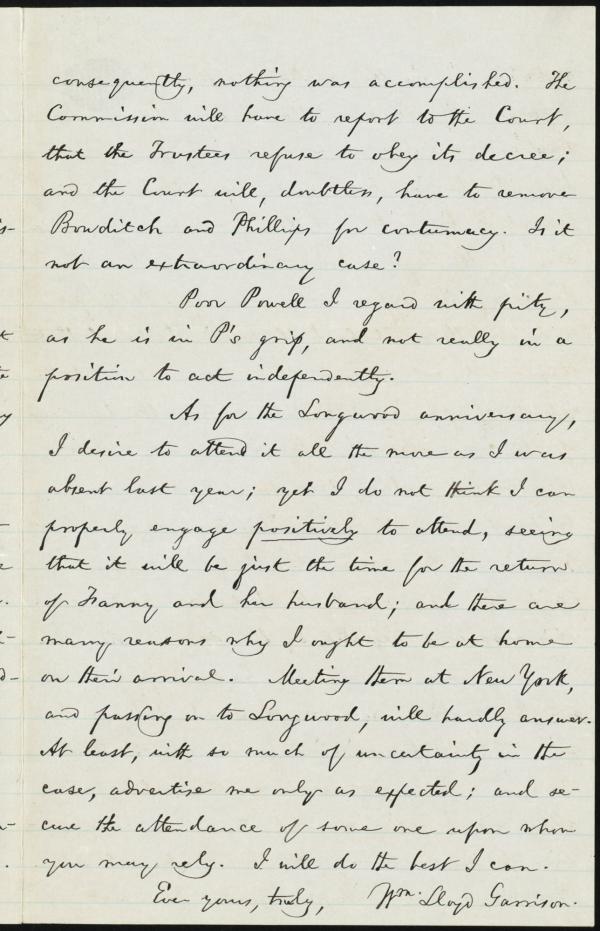 consequently, nothing was accomplished. The
Commission will have to report to the Court,
that the Trustees refuse to obey its decree;
and the Court will, doubtless, have to remove
Bowditch and Phillips for contumacy. Is it
not an extraordinary case?
Poor Powell I regard with pity,
as he is in P's grip, and not really in a
position to act independently.
As for the Longwood anniversary,
I desire to attend it all the more as I was
absent last year; yet I do not think I can
properly engage positively to attend, seeing
that it will be just the time for the return
of Fanny and her husband; and there are
many reasons why I ought to be at home
on their arrival. Meeting them at New York,
and passing on to Longwood, will hardly answer.
At least, with so much of uncertainty in the
case, advertise me only as expected; and se-
cure the attendance of some one upon whom
you may rely. I will do the best I can.
Ever yours, truly, Wm. Lloyd Garrison.